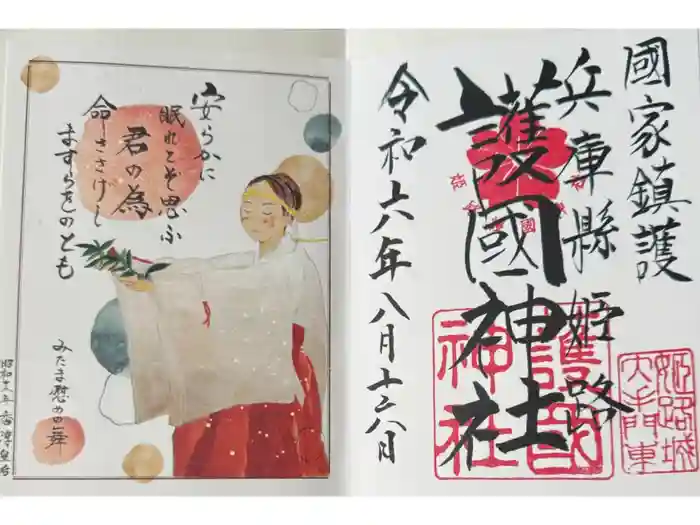 國家鎮護
兵庫縣姫路
護國神社
令和六年八月十六日
護國
神社
姫路城
大手門東
安らかに
眠れとぞ思ふ
君の為
命ささげし
ますらをのとも
みたま慰めの舞